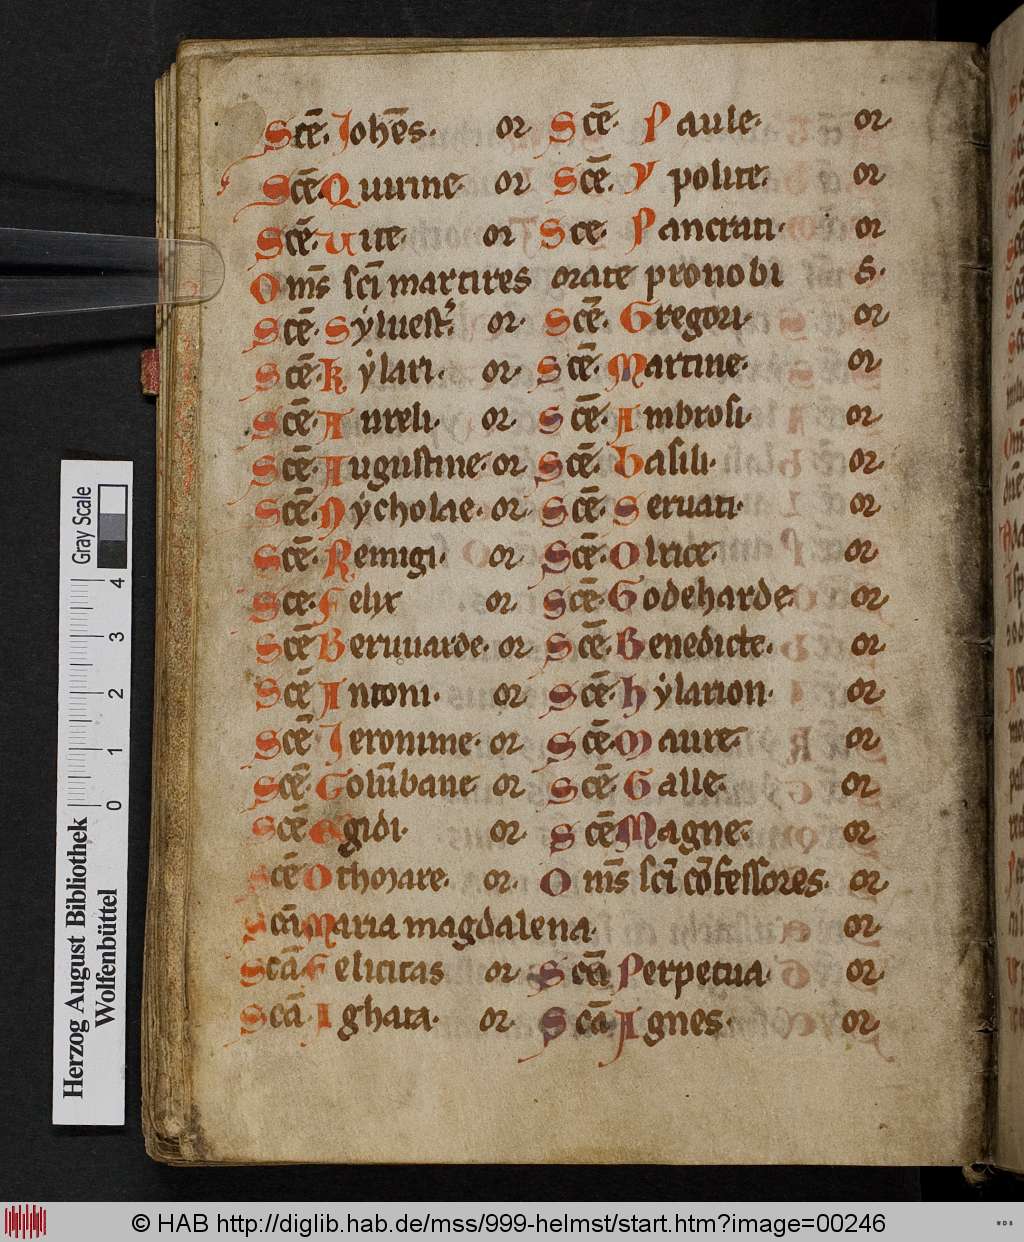 Scē. Iohēs. or Scē. Paule. or
Scē. Quirine. or Scē. Ypolite. or
Scē. Uite. or Sce. Pancrati. or
Om̄s sc̄i martires orate pro nobis.
Scē. Syluestr̄. or Scē. Gregori. or
Scē. kylari. or Scē. Martine. or
Scē. Aureli. or Scē. Ambrosi. or
Scē. Augustine. or Scē. basili. or
Scē. Nycholae. or Scē. Seruati. or
Scē. Remigi. or Scē. Olrice. or
Sce. Felix or Scē. Godeharde. or
Scē Beruuarde. or Scē. Benedicte. or
Scē Antoni. or Scē. hylarion. or
Scē Ieronime. or Scē. Maure. or
Scē. Colūbane or Scē. Galle. or
Scē. Egidi. or Scē Magne. or
Scē Othmare. or. Om̄s sc̄i cōfessores. or
Scā Maria magdalena. or
Scā Felicitas or Scā Perpetua. or
Scā Aghata. or. Scā Agnes. or
Herzog August Bibliothek
Wolfenbüttel
0 1 2 3 4
Gray Scale
© HAB http://diglib.hab.de/mss/999-helmst/start.htm?image=00246